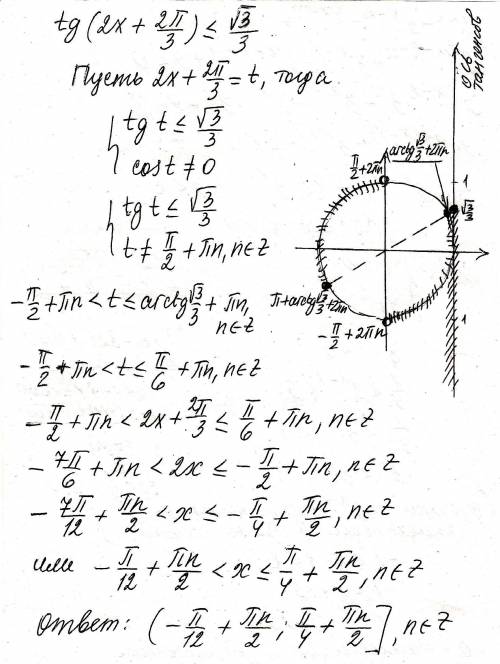 tg(2x + 2π/3) ≤ √3/3
Пусть 2x + 2π/3 = t, тогда
{ tg t ≤ √3/3
cos t ≠ 0
{ tg t ≤ √3/3
t ≠ π/2 + πn, n∈Z
-π/2 + πn < t ≤ arctg √3/3 + πn, n∈Z
-π/2 + πn < t ≤ π/6 + πn, n∈Z
-π/2 + πn < 2x + 2π/3 ≤ π/6 + πn, n∈Z
-7π/6 + πn < 2x ≤ -π/2 + πn, n∈Z
-7π/12 + πn/2 < x ≤ -π/4 + πn/2, n∈Z
или -π/12 + πn/2 < x ≤ π/4 + πn/2, n∈Z
Ответ: (-π/12 + πn/2; π/4 + πn/2], n∈Z
ось тангенсов
arctg √3/3 + 2πn
π/2 + 2πn
1
√3/3
π + arctg √3/3 + 2πn
-π/2 + 2πn
1